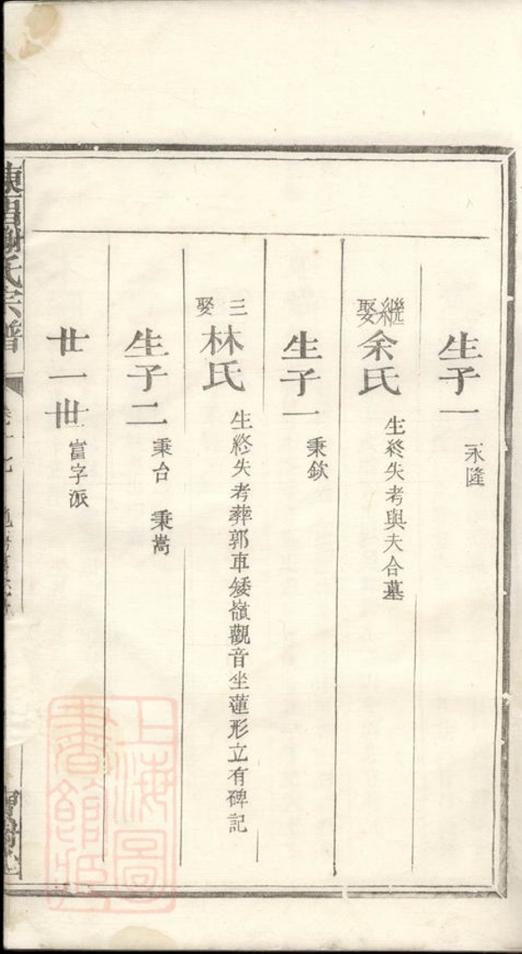 生子一 永隆
繼娶余氏 生終失考與夫合墓
生子一 秉欽
三娶林氏 生終失考葬郭車矮嶺觀音坐蓮形立有碑記
生子二 秉台 秉嵩
廿一世 富字派
氏宗譜
上海圖書館藏